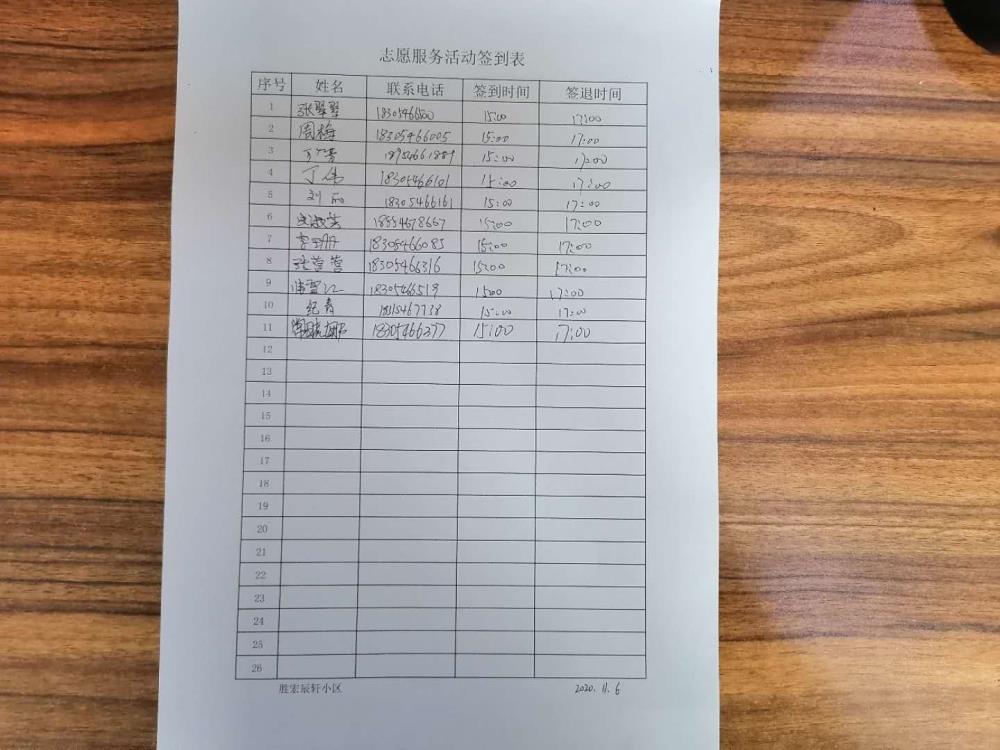 志愿服务活动签到表
序号 姓名 联系电话 签到时间 签退时间
1 15:00 17:00
2 周梅 18305466005 15:00 17:00
3 15:00 17:00
4 丁伟 18305466101 15:00 17:00
5 刘丽 18305466161 15:00 17:00
6 15:00 17:00
7 18305466085 15:00 17:00
8 18305466316 15:00 17:00
9 18305466519 15:00 17:00
10 纪青 15:00 17:00
11 18305466377 15:00 17:00
12
13
14
15
16
17
18
19
20
21
22
23
24
25
26
胜宏辰轩小区 2020.11.6